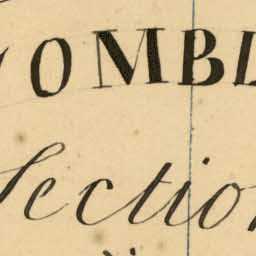 OMBL
Sectio